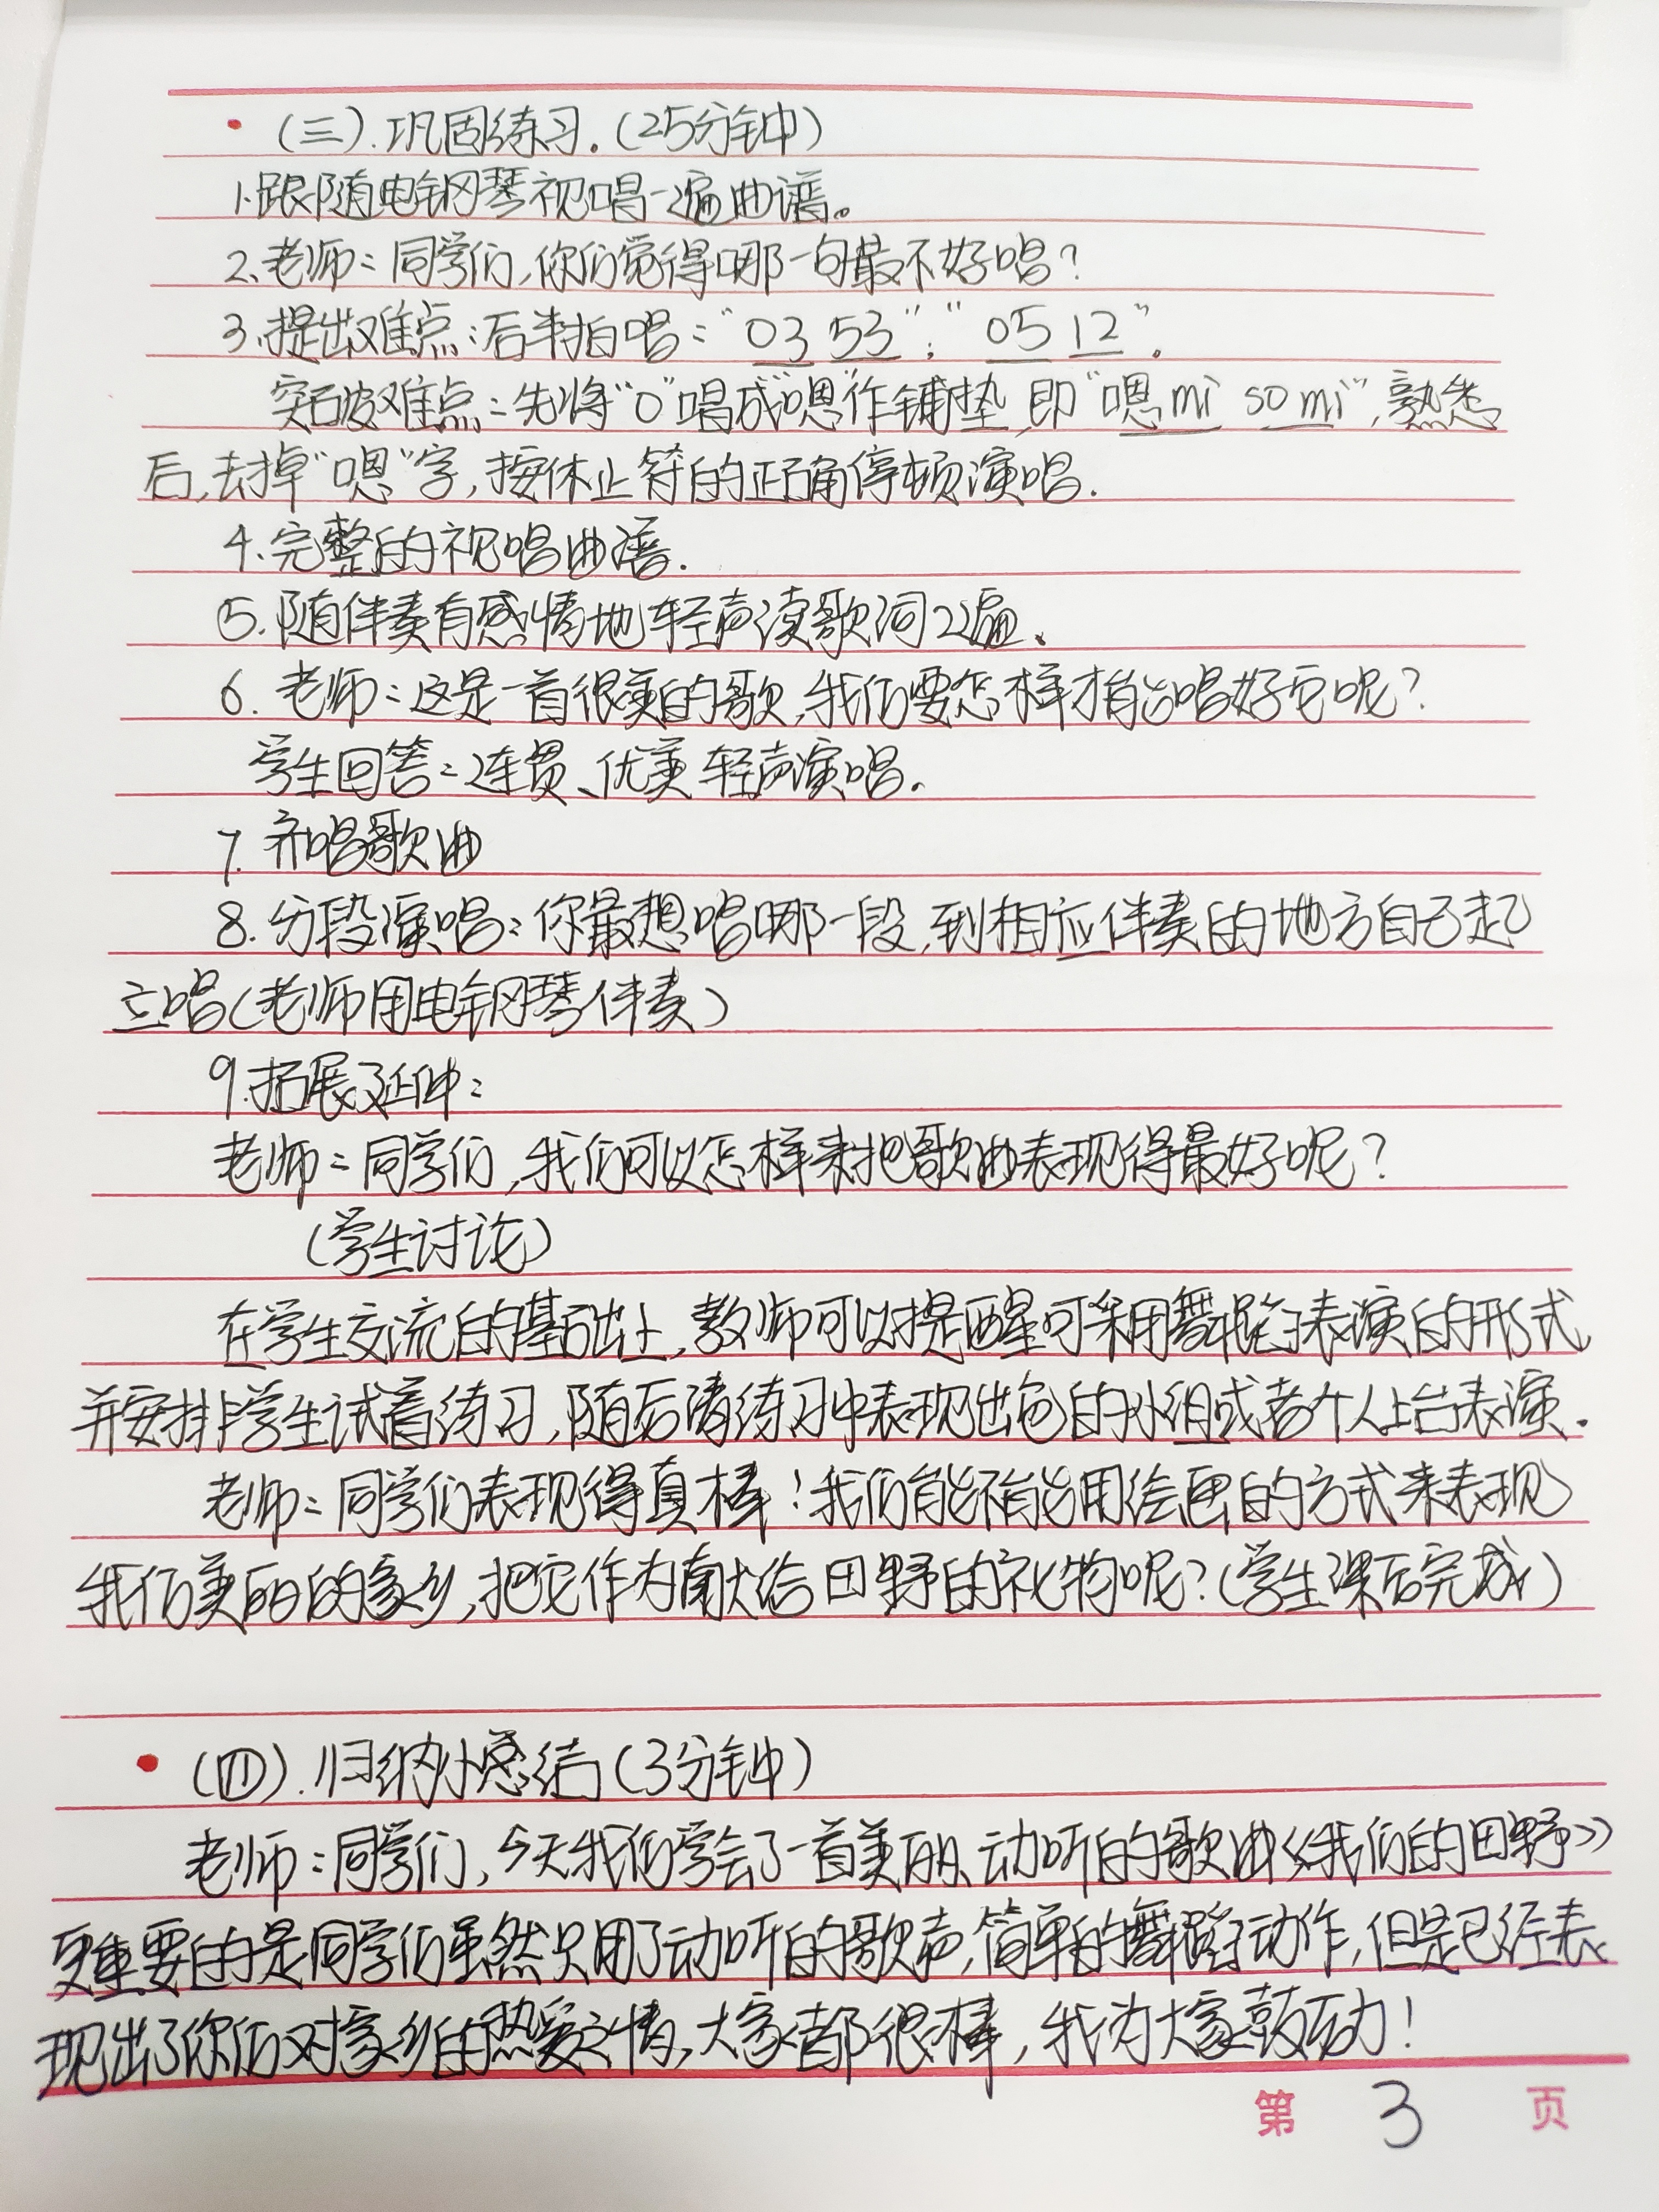 (三).巩固练习.(25分钟)
1.跟随电钢琴视唱一遍曲谱。
2.老师:同学们,你们觉得哪一句最不好唱?
3.提出难点:后半拍唱:"03 53";"05 12"。
突破难点:先将"0"唱成"嗯"作铺垫,即"嗯mi so mi",熟悉
后,去掉"嗯"字,按休止符的正确停顿演唱.
4.完整的视唱曲谱.
5.随伴奏有感情地轻声读歌词2遍、
6.老师:这是一首很美的歌,我们要怎样才能唱好它呢?
学生回答:连贯、优美轻声演唱.
7.齐唱歌曲
8.分段演唱:你最想唱哪一段,到相应伴奏的地方自己起
立唱(老师用电钢琴伴奏)
9.拓展延伸:
老师:同学们,我们可以怎样来把歌曲表现得最好呢?
(学生讨论)
在学生交流的基础上,教师可以提醒可采用舞蹈表演的形式,
并安排学生试着练习,随后请练习中表现出色的小组或者个人上台表演.
老师:同学们表现得真棒!我们能不能用绘画的方式来表现
我们美丽的家乡,把它作为献给田野的礼物呢?(学生课后完成)
(四).归纳小总结(3分钟)
老师:同学们,今天我们学会了一首美丽、动听的歌曲《我们的田野》
更重要的是同学们虽然只用了动听的歌声,简单的舞蹈动作,但是已经表
现出了你们对家乡的热爱之情,大家都很棒,我为大家鼓动力!
第 3 页